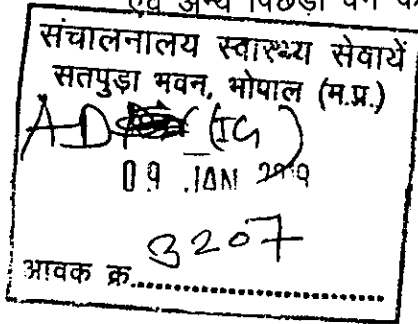 एवं अन्य पिछड़ा वर्ग
संचालनालय स्वास्थ्य सेवायें
सतपुड़ा भवन, भोपाल (म.प्र.)
AD (IG)
09 JAN
3207
आवक क्र.....................